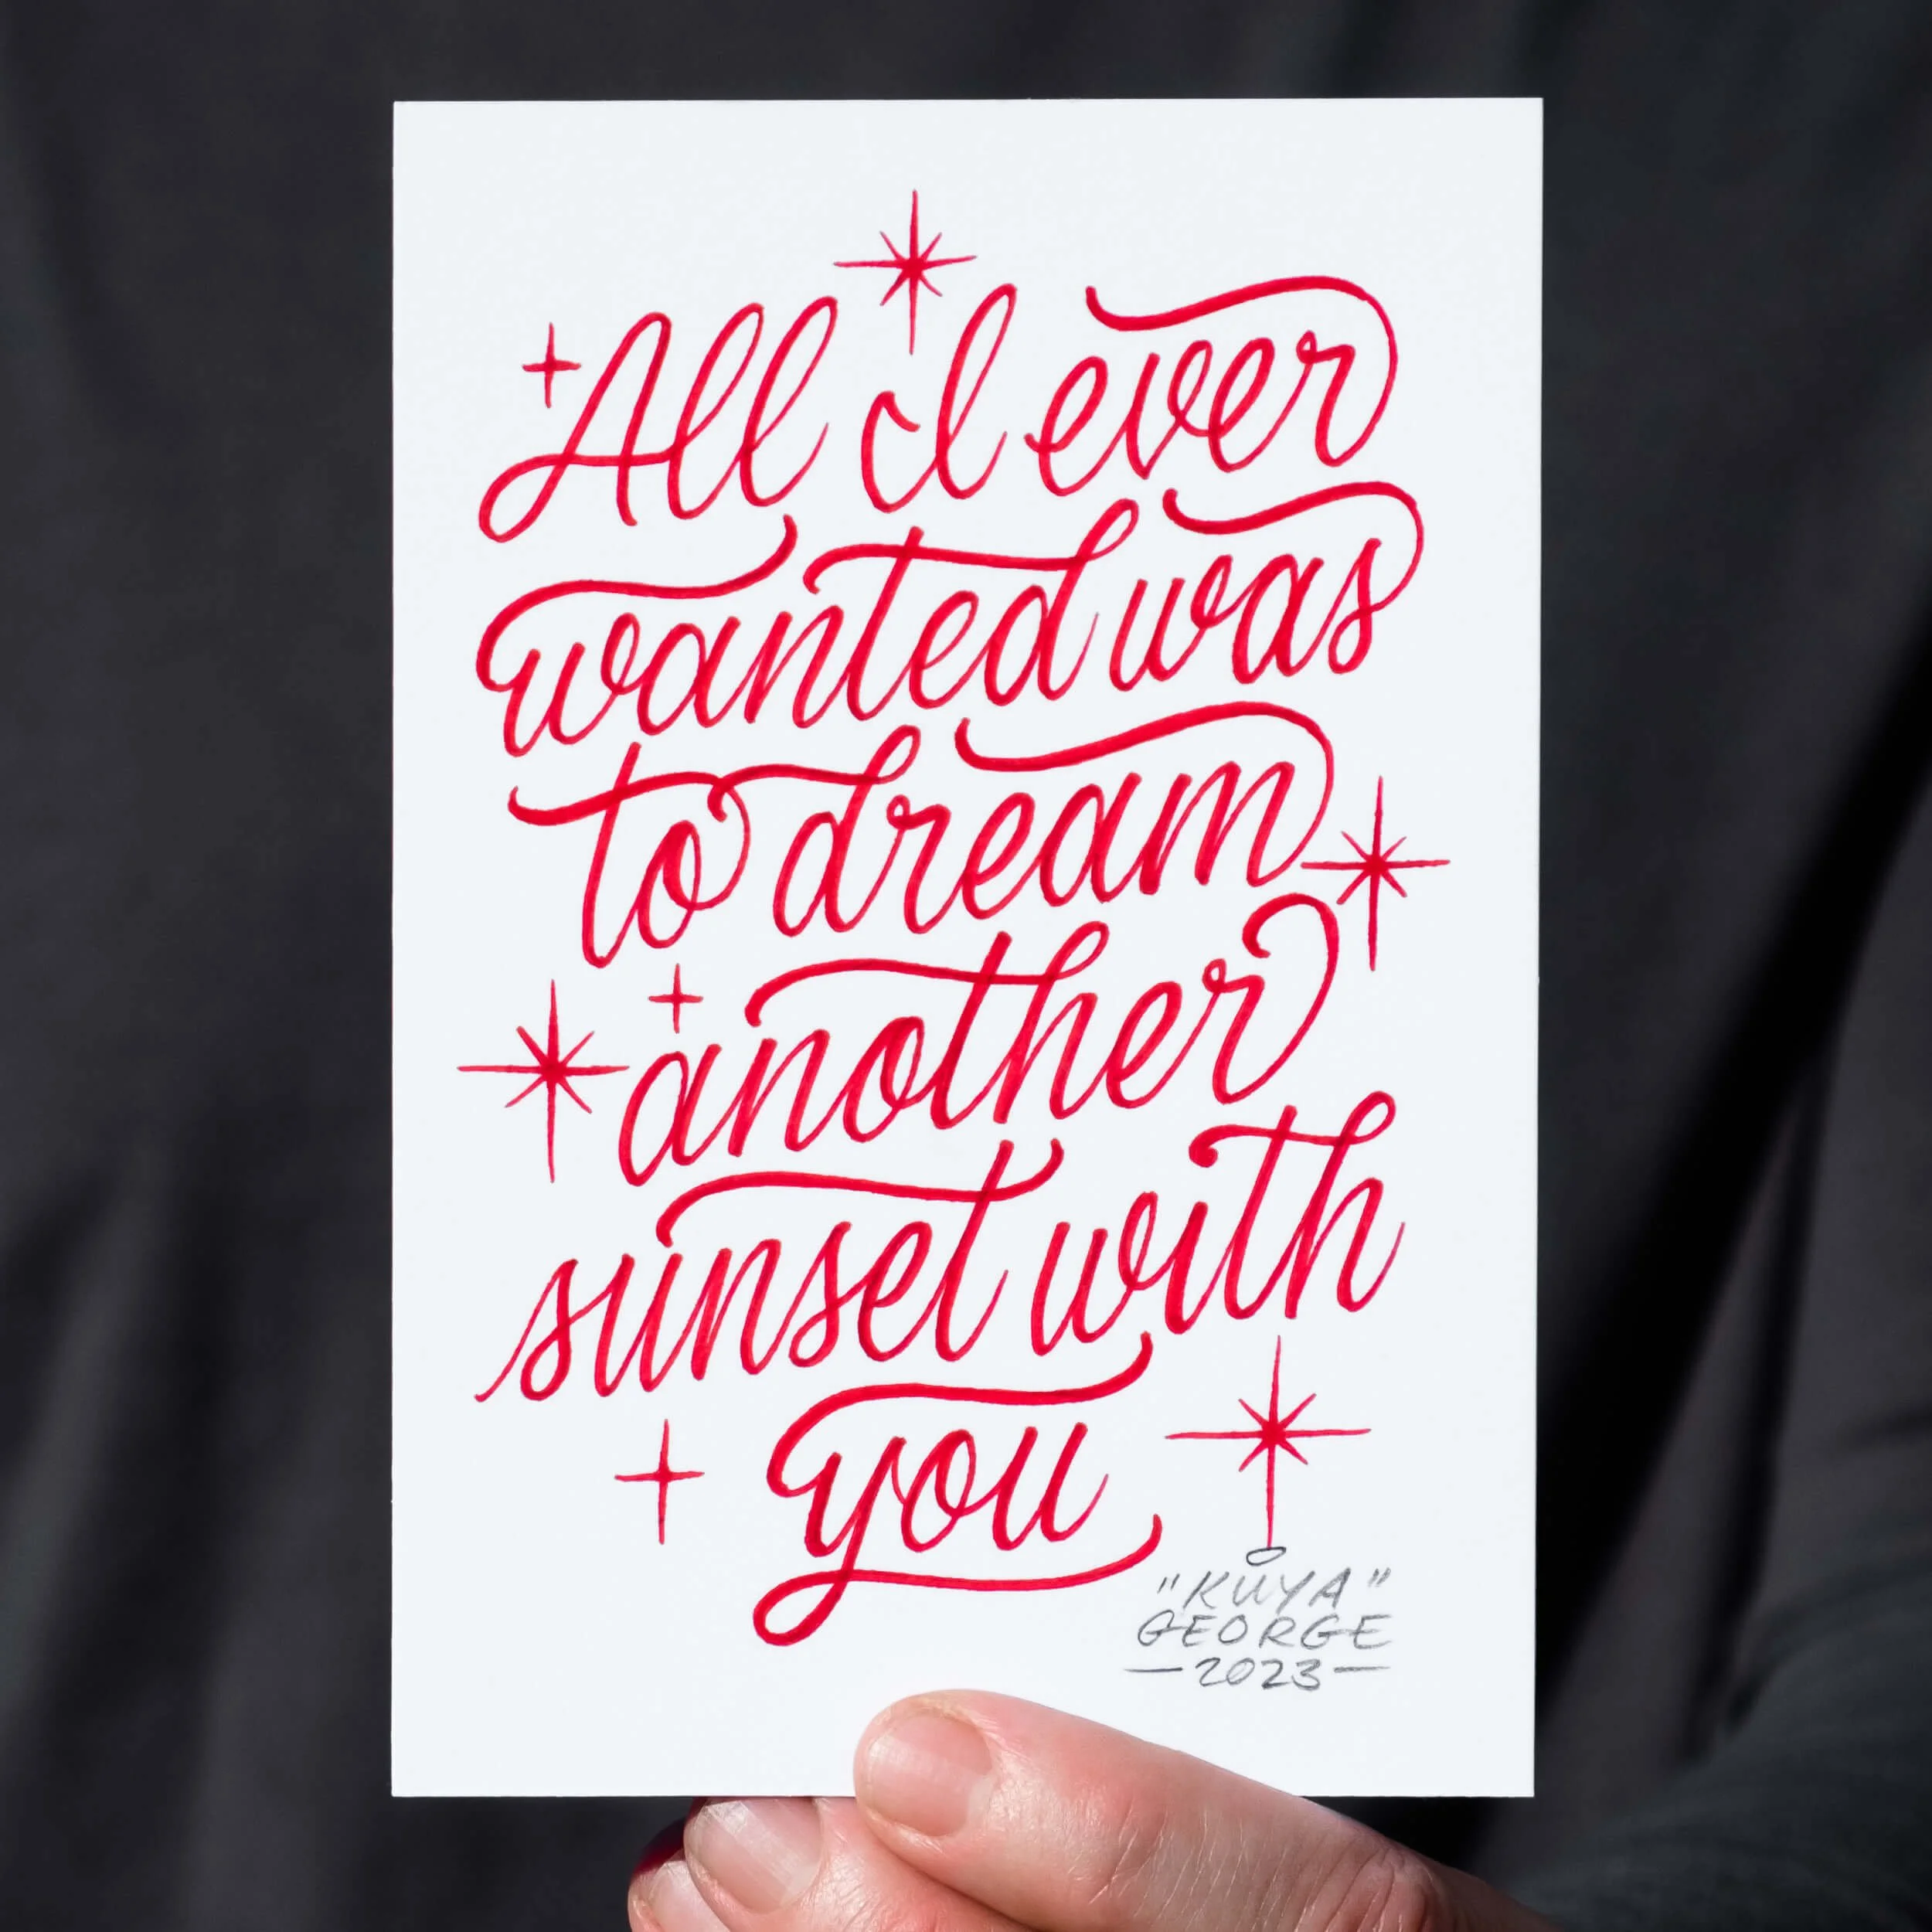 All I ever
wanted was
to dream
another
sunset with
you
"KUYA"
GEORGE
—2023—